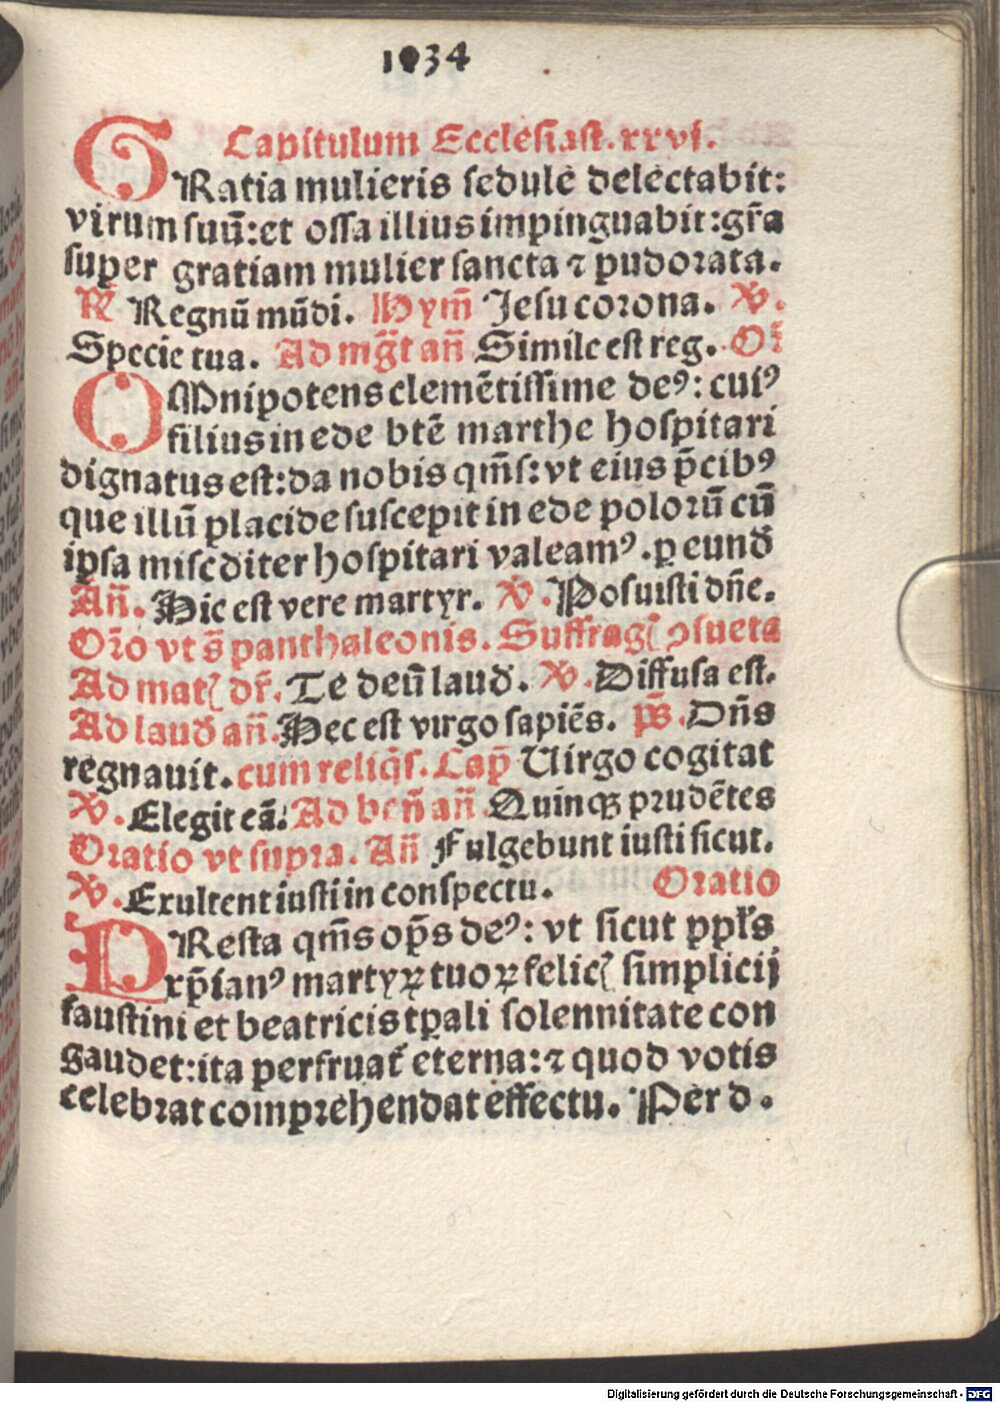 1034
Capitulum Ecclesiast. xxvi.
GRatia mulieris sedule delectabit:
virum suū: et ossa illius impinguabit: gr̃a
super gratiam mulier sancta ⁊ pudorata.
℟ Regnū mūdi. Hym̄ Jesu corona. ℣.
Specie tua. Ad mg̃t an̄ Simile est reg. Or̃
OMnipotens clemētissime deꝰ: cuiꝰ
filius in ede btē marthe hospitari
dignatus est: da nobis qm̄s: vt eius p̄cibꝰ
que illū placide suscepit in ede polorū cū
ipsa misc̄diter hospitari valeamꝰ. ꝑ eund̄
An̄. Hic est vere martyr. ℣. Posuisti dn̄e.
Or̄o vt s̄ panthaleonis. Suffragꝭ ꝯsueta
Ad matꝭ dr̄. Te deū laud̄. ℣. Diffusa est.
Ad laud̄ an̄. Hec est virgo sapiēs. p̄s. Dn̄s
regnauit. cum reliq̄s. Cap̄ Uirgo cogitat
℣. Elegit eā. Ad ben̄ an̄ Quinqꝫ prudētes
Oratio vt supra. An̄ Fulgebunt iusti sicut.
℣. Exultent iusti in conspectu. Oratio
PResta qm̄s op̄s deꝰ: vt sicut ppl̄s
xp̄ianꝰ martyrꝝ tuoꝝ felicꝭ simplicij
faustini et beatricis tꝑali solennitate con
gaudet: ita perfruat̄ eterna: ⁊ quod votis
celebrat comprehendat effectu. Per d.
Digitalisierung gefördert durch die Deutsche Forschungsgemeinschaft - DFG